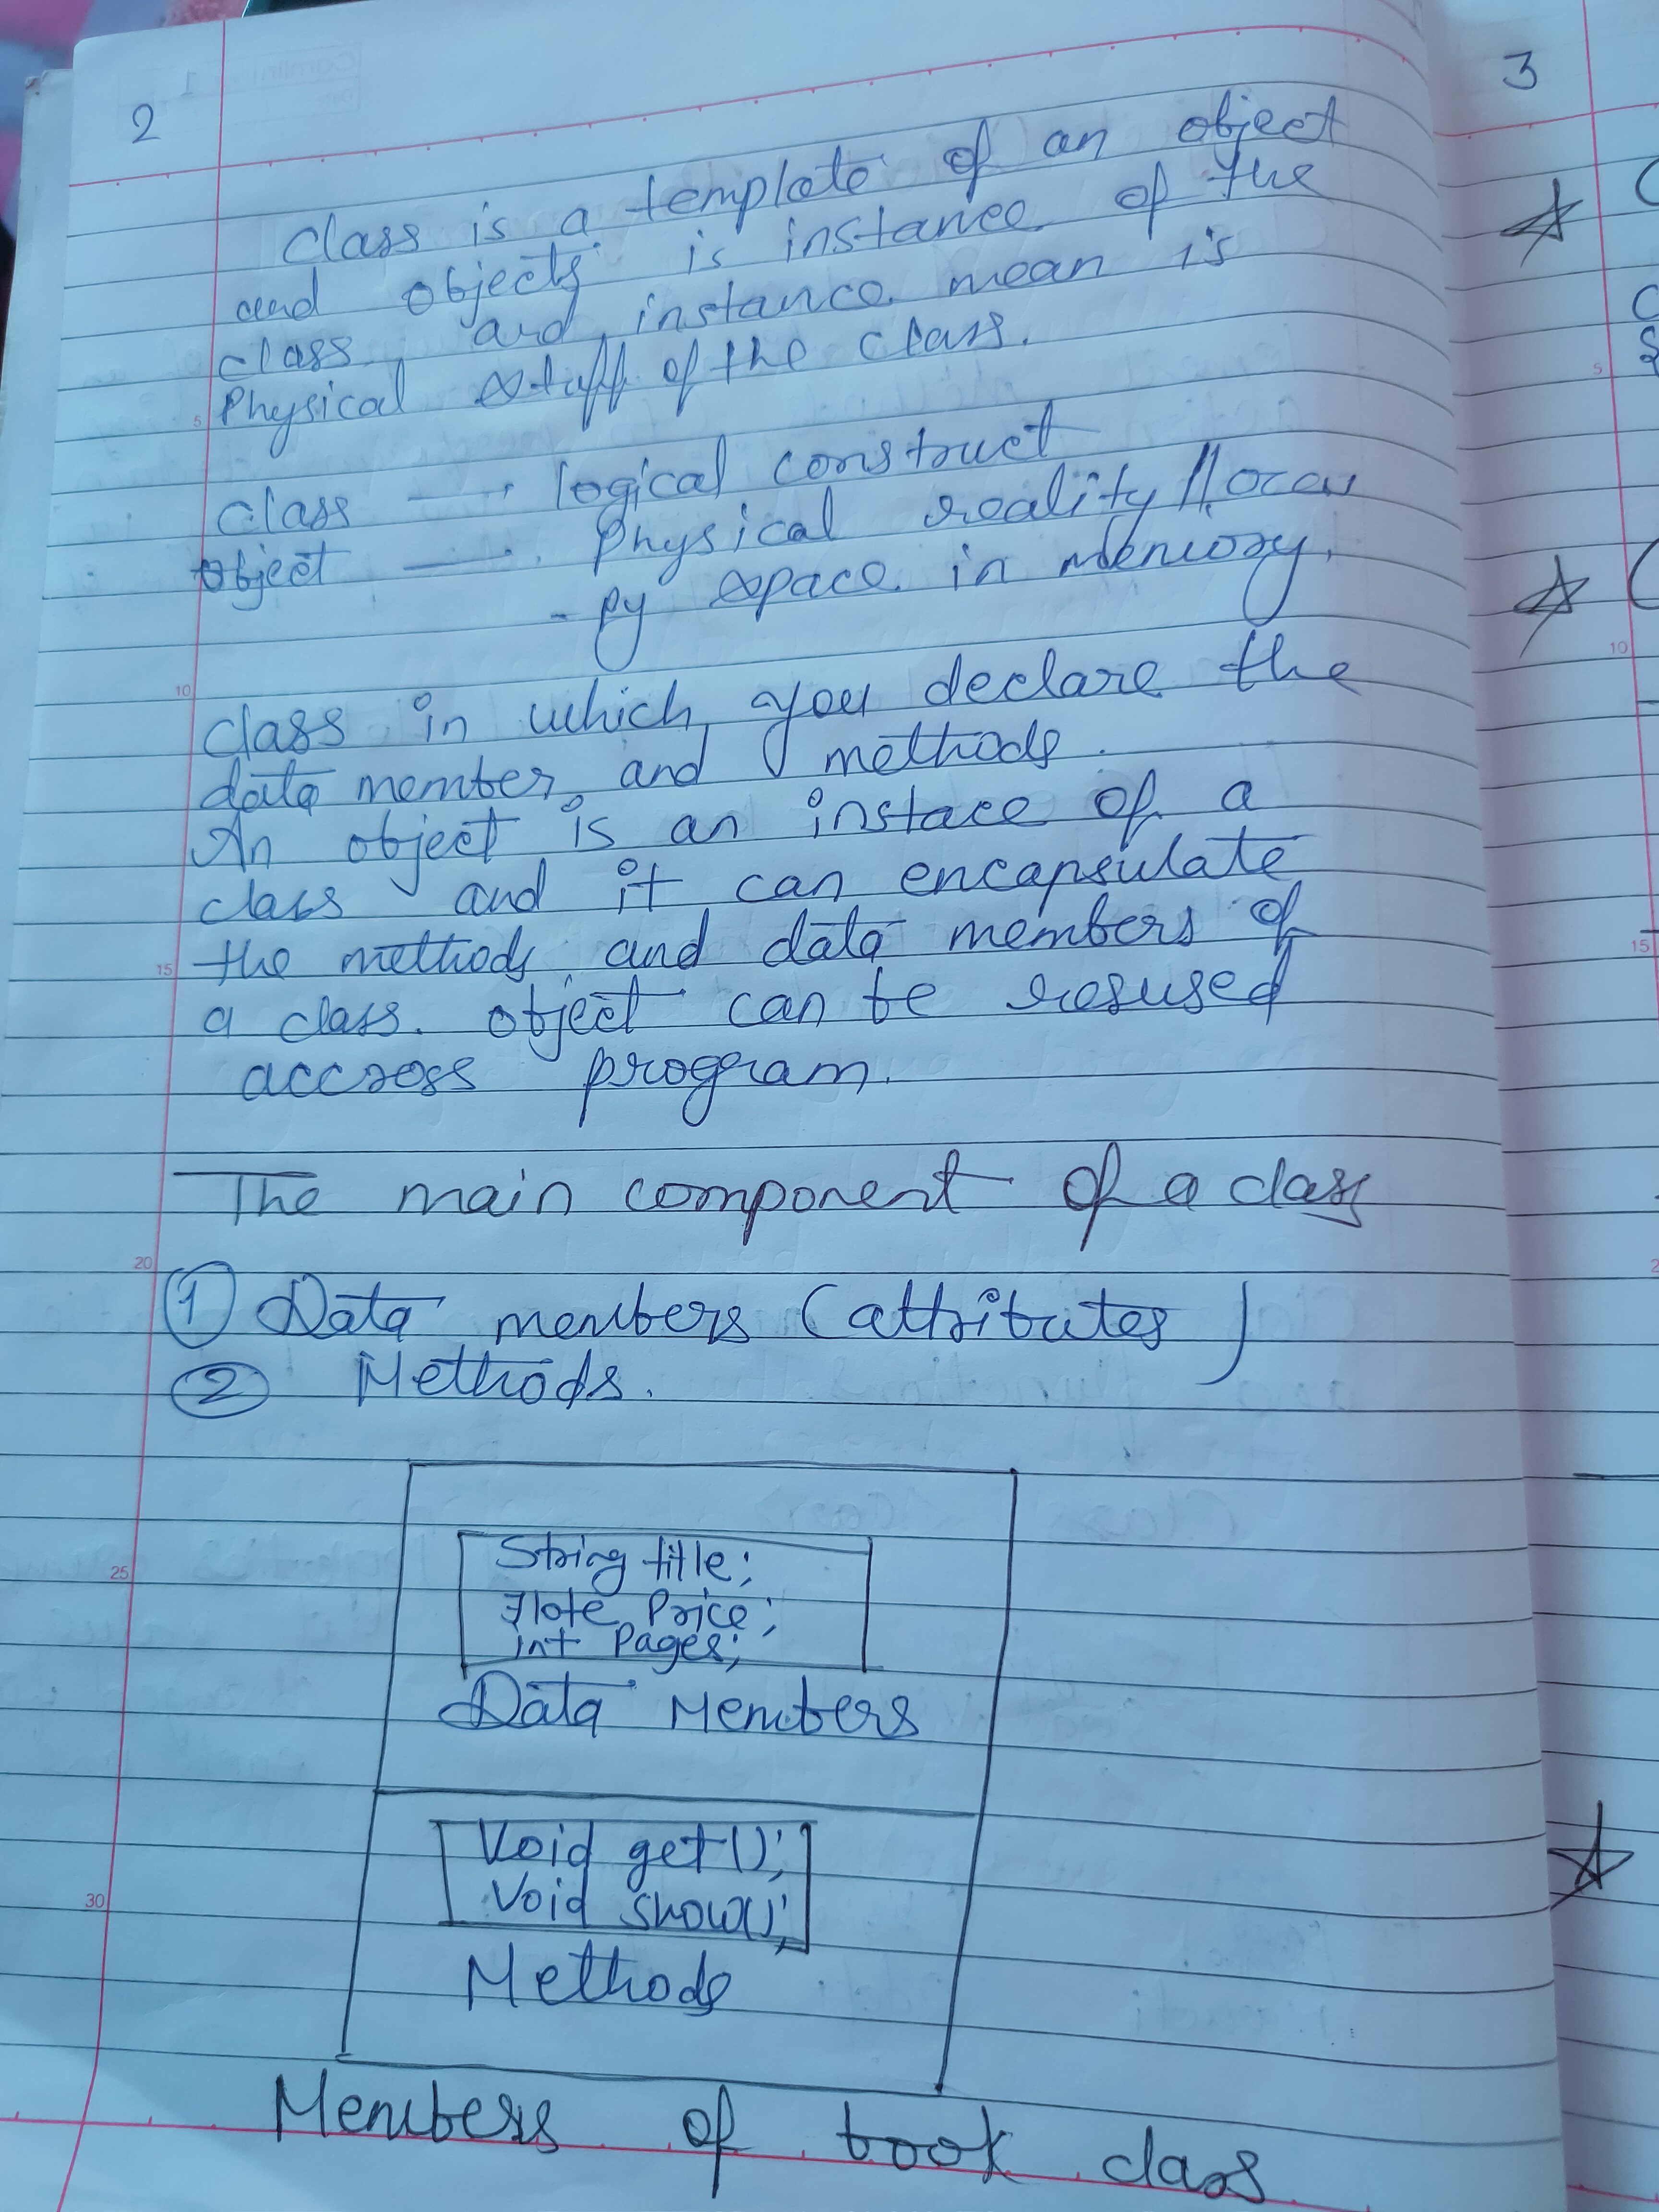 2
class is a template of an object
and objects is instance of the
class and instance mean is
Physical stuff of the class.
class → logical construct
object → Physical reality // occu
- py space in memory.
class in which you declare the
data member and methods.
An object is an instace of a
class and it can encapsulate
the methods and data members of
a class. object can be resused
accross program.
The main component of a class
① Data members (attributes)
② Methods.
String title;
Flote Price;
int Pages;
Data Members
Void get();
Void show();
Methods
Members of book class
3